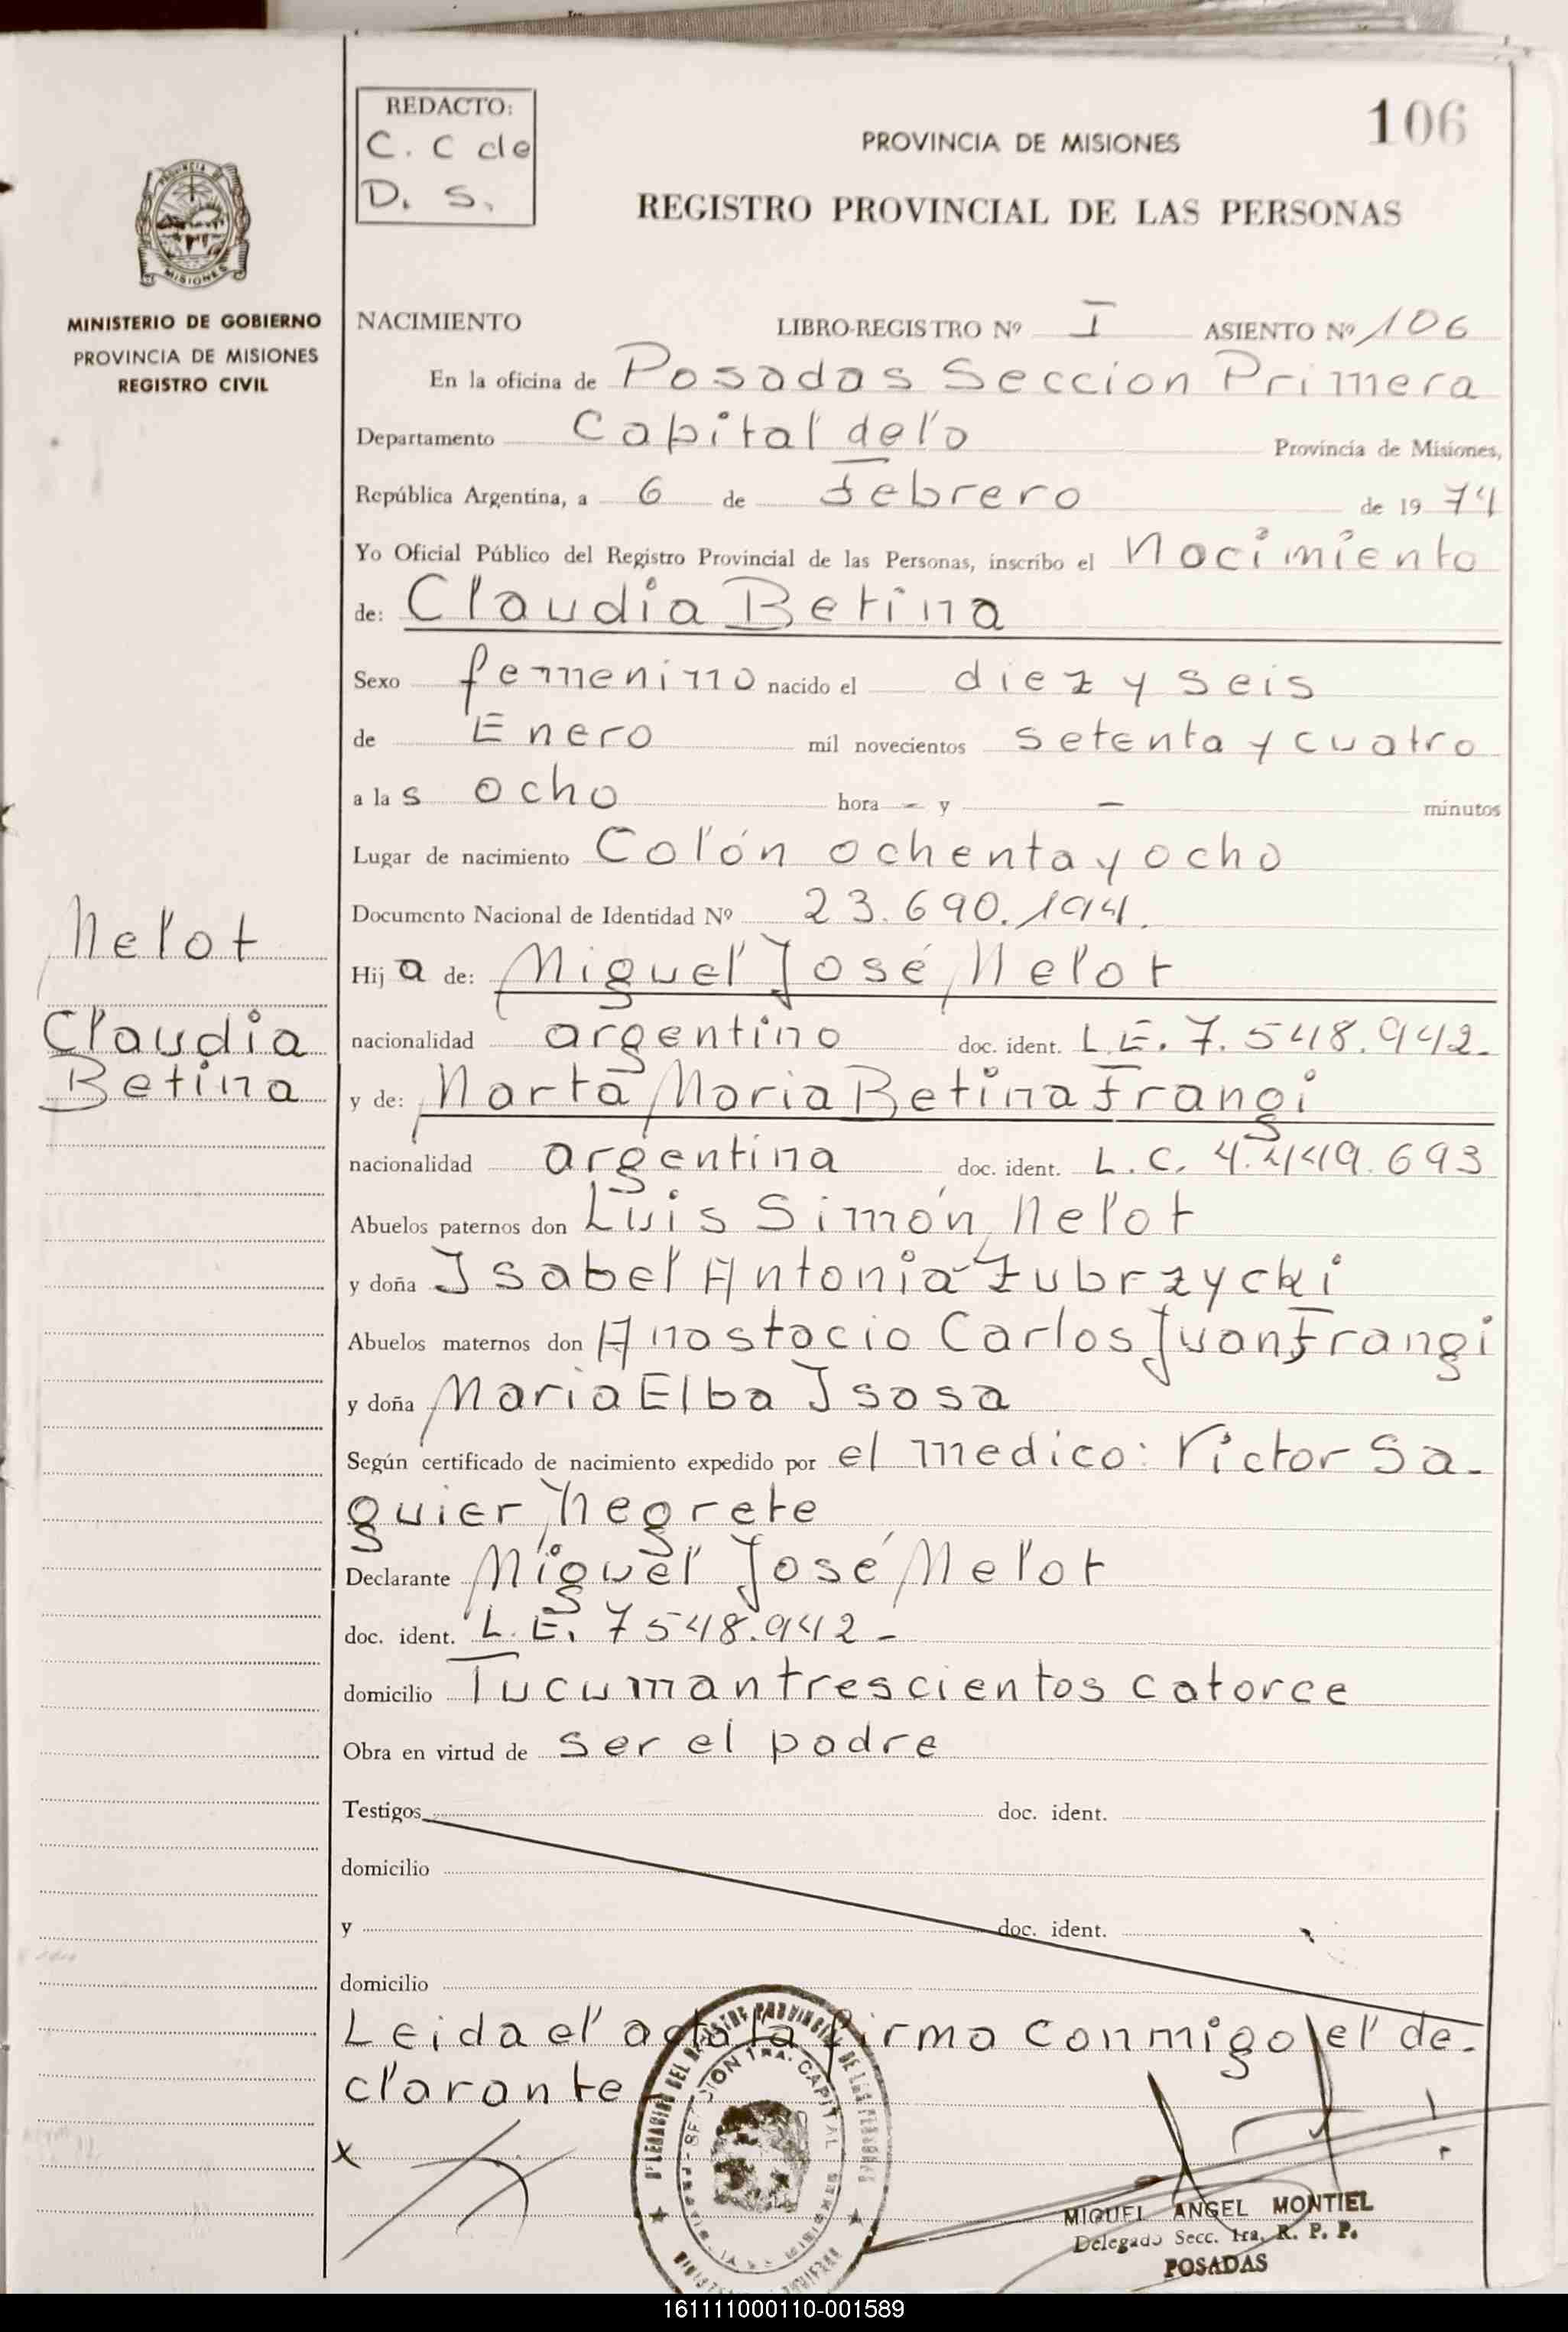 REDACTO:
C. C de
D. S.
106
PROVINCIA DE MISIONES
REGISTRO PROVINCIAL DE LAS PERSONAS
PROVINCIA DE
MISIONES
MINISTERIO DE GOBIERNO
PROVINCIA DE MISIONES
REGISTRO CIVIL
NACIMIENTO LIBRO-REGISTRO Nº I ASIENTO Nº 106
En la oficina de Posadas Seccion Primera
Departamento Capital de la Provincia de Misiones,
República Argentina, a 6 de Febrero de 19 74
Yo Oficial Público del Registro Provincial de las Personas, inscribo el Nacimiento
de: Claudia Betina
Sexo femenino nacido el diez y seis
de Enero mil novecientos setenta y cuatro
a las ocho hora - y - minutos
Lugar de nacimiento Colón ochenta y ocho
Documento Nacional de Identidad Nº 23.690.194.
Melot
Claudia
Betina
Hija de: Miguel José Melot
nacionalidad argentino doc. ident. L.E. 7.548.942.-
y de: Marta Maria Betina Frangi
nacionalidad argentina doc. ident. L.C. 4.449.693
Abuelos paternos don Luis Simón Melot
y doña Isabel Antonia Zubrzycki
Abuelos maternos don Anastacio Carlos Juan Frangi
y doña Maria Elba Isasa
Según certificado de nacimiento expedido por el medico: Victor Sa-
guier Negrete
Declarante Miguel José Melot
doc. ident. L.E. 7548.942-
domicilio Tucuman trescientos catorce
Obra en virtud de ser el padre
Testigos doc. ident.
domicilio
y doc. ident.
domicilio
Leida el acta la firma conmigo el de-
clarante
x
MIGUEL ANGEL MONTIEL
Delegado Secc. 1ra. R. P. P.
POSADAS
161111000110-001589